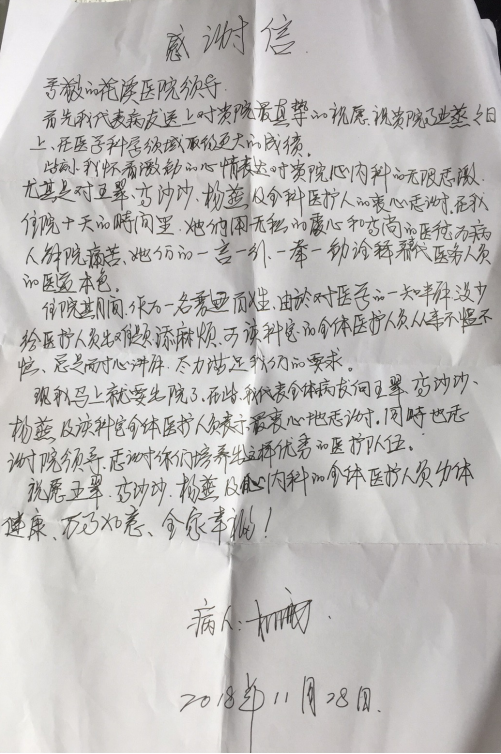 感谢信
尊敬的花溪医院领导:
首先我代表病友送上对贵院最真挚的祝愿,祝贵院事业蒸蒸日
上,在医学科学领域取得更大的成绩。
此刻我怀着激动的心情表达对贵院心内科的无限感激,
尤其是对王翠、高沙沙、杨燕及全科医护人的衷心感谢,在我
住院十天的时间里,她们用无私的爱心和高尚的医德为病
人解脱痛苦,她们的一言一行、一举一动诠释着代医务人员
的医爱本色。
住院其间,作为一名普通而性,由於对医学的一知半解没少
给医护人员出难题添麻烦,可该科室的全体医护人员从来不愠不
恼,总是耐心讲解,尽力满足我们的要求。
现我马上就要出院了,在此,我代表全体病友向王翠、高沙沙、
杨燕及该科室全体医护人员表示最衷心地感谢,同时也感
谢院领导,感谢你们培养出这样优秀的医护队伍。
祝愿王翠、高沙沙、杨燕及心内科的全体医护人员身体
健康、万事如意、全家幸福!
病人:
2018年11月28日.